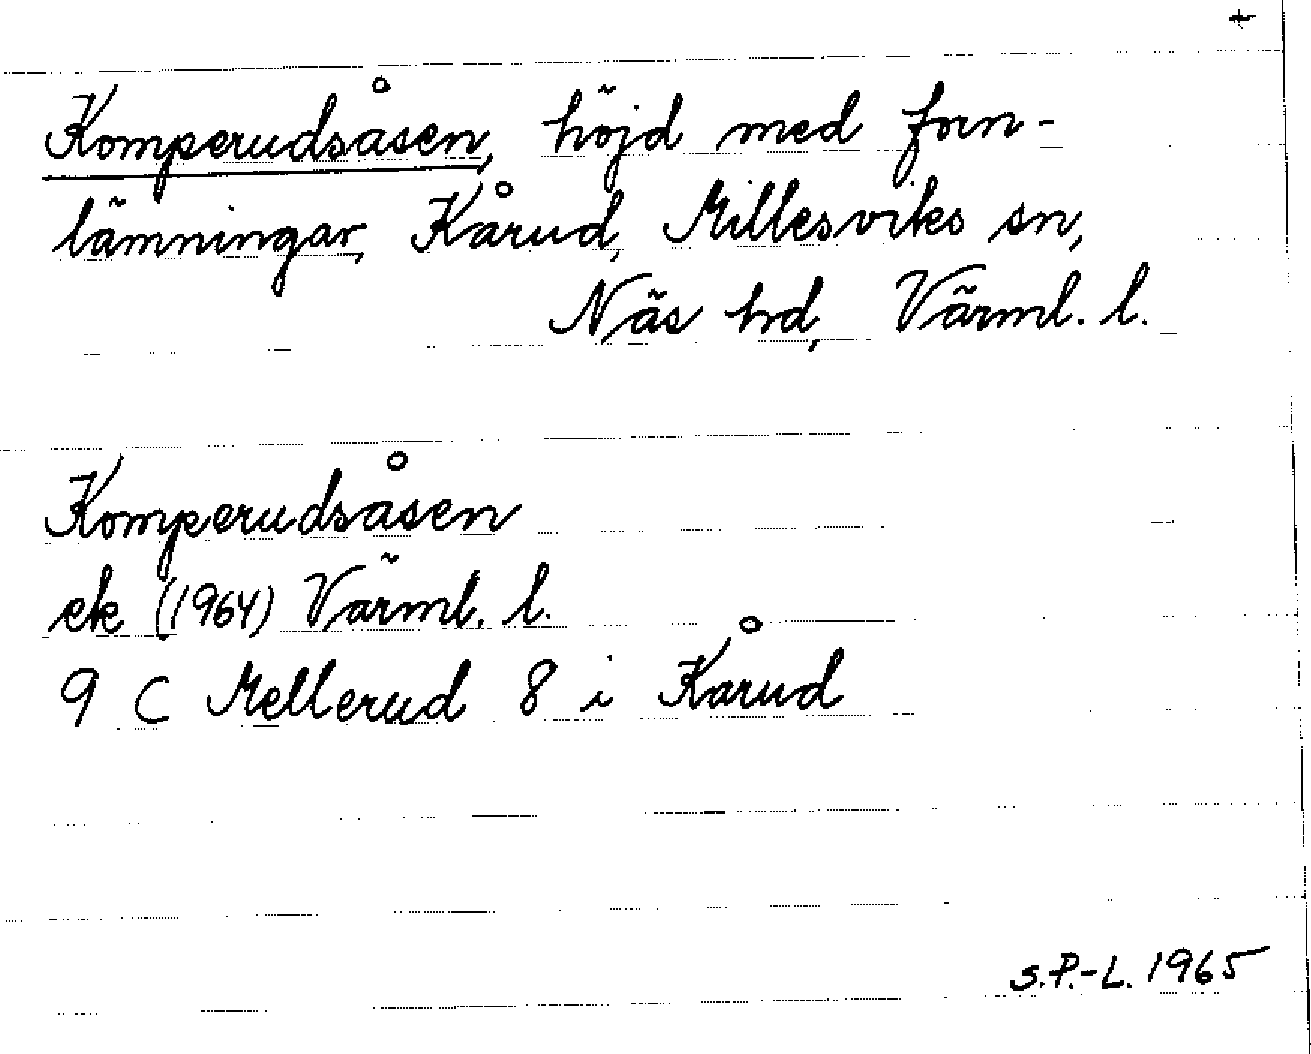 +
Komperudsåsen, höjd med forn-
lämningar, Kårud, Millesviks sn,
Näs hd, Värml. l.
Komperudsåsen
ek (1964) Värml. l.
9 C Mellerud 8 i Kårud
S.P.-L. 1965